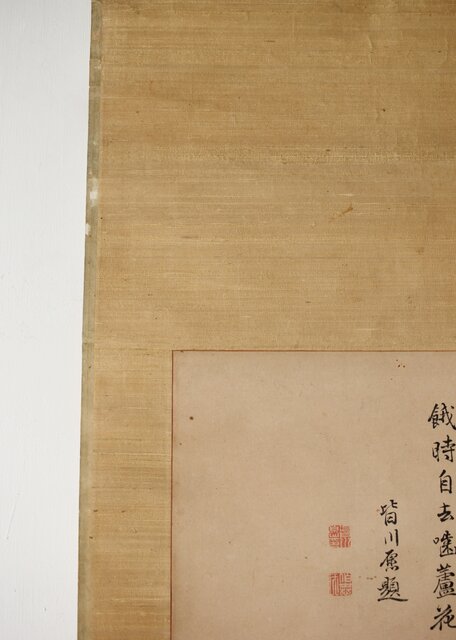 餓時自去嚙蘆花
皆川愿題